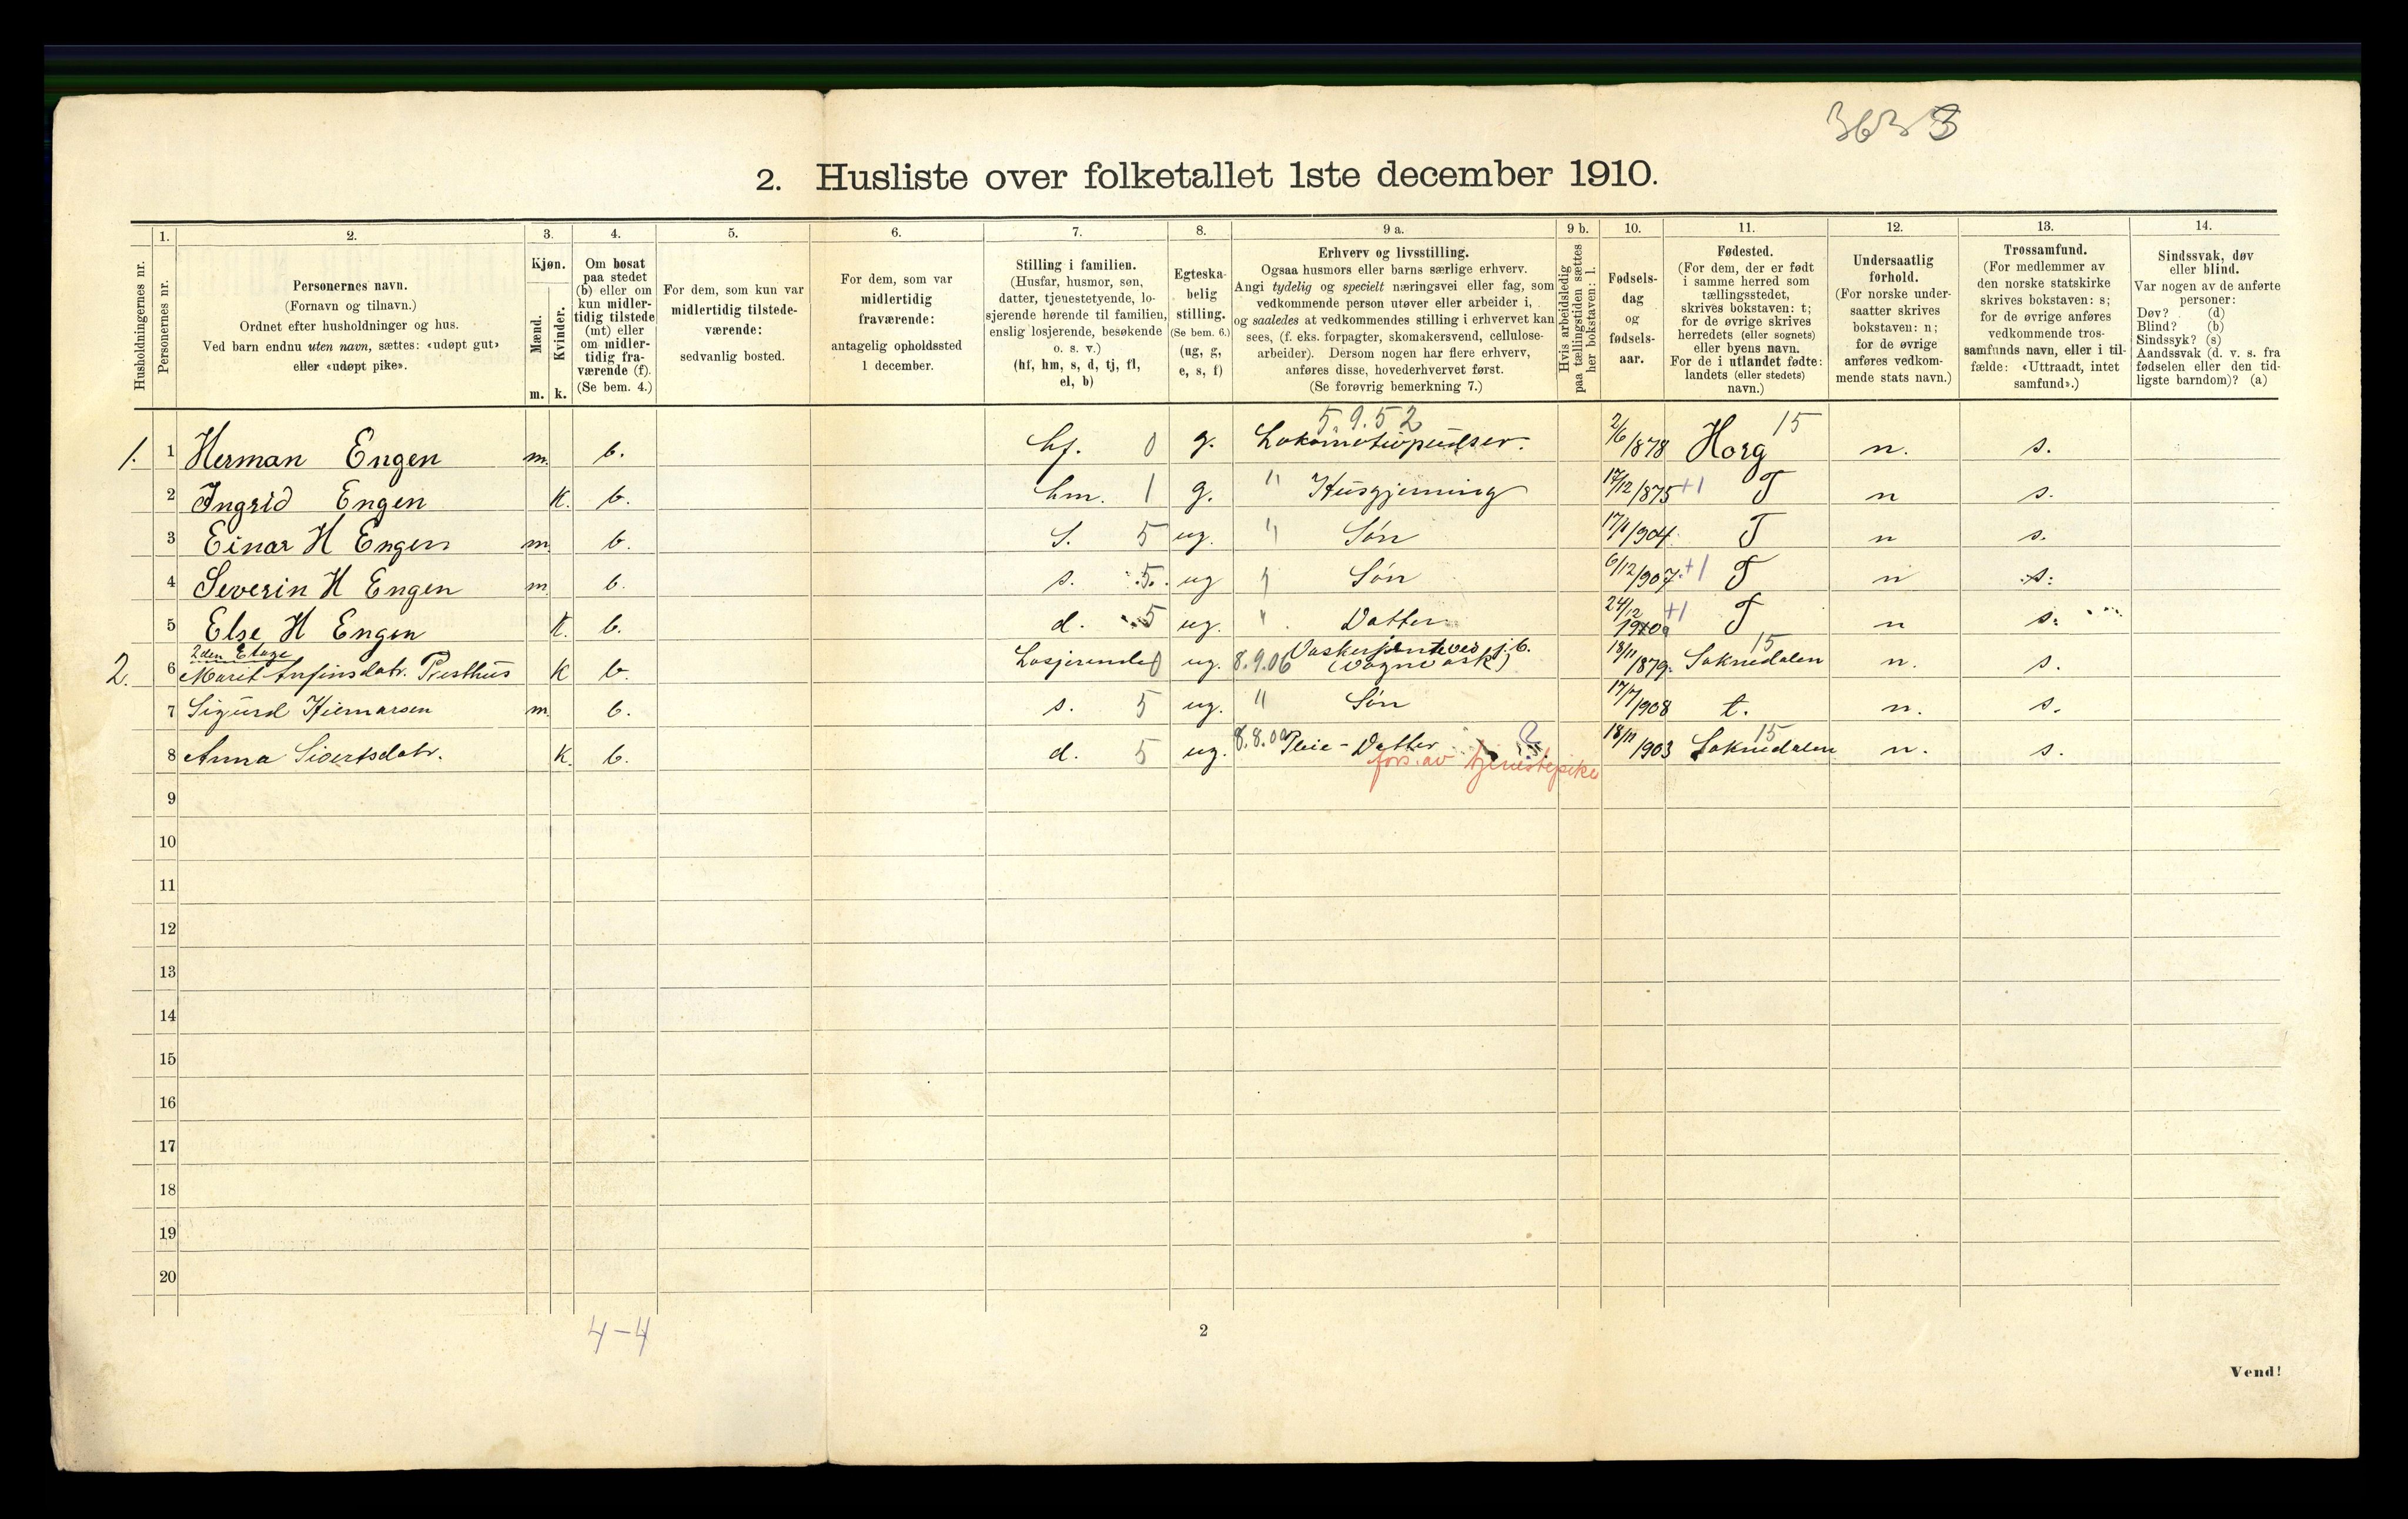 3633
2. Husliste over folketallet 1ste december 1910.
Husholdningernes nr.
1.
Personernes nr.
2.
Personernes navn.
(Fornavn og tilnavn.)
Ordnet efter husholdninger og hus.
Ved barn endnu uten navn, sættes: «udøpt gut»
eller «udøpt pike».
3.
Kjøn.
Mænd.
Kvinder.
m. k.
4.
Om bosat
paa stedet
(b) eller om
kun midler-
tidig tilstede
(mt) eller
om midler-
tidig fra-
værende (f).
(Se bem. 4.)
5.
For dem, som kun var
midlertidig tilstede-
værende:
sedvanlig bosted.
6.
For dem, som var
midlertidig
fraværende:
antagelig opholdssted
1 december.
7.
Stilling i familien.
(Husfar, husmor, søn,
datter, tjenestetyende, lo-
sjerende hørende til familien,
enslig losjerende, besøkende
o. s. v.)
(hf, hm, s, d, tj, fl,
el, b)
8.
Egteska-
belig
stilling.
(Se bem. 6.)
(ug, g,
e, s, f)
9 a.
Erhverv og livsstilling.
Ogsaa husmors eller barns særlige erhverv.
Angi tydelig og specielt næringsvei eller fag, som
vedkommende person utøver eller arbeider i,
og saaledes at vedkommendes stilling i erhvervet kan
sees, (f. eks. forpagter, skomakersvend, cellulose-
arbeider). Dersom nogen har flere erhverv,
anføres disse, hovederhvervet først.
(Se forøvrig bemerkning 7.)
9 b.
Hvis arbeidsledig
paa tællingstiden sættes
her bokstaven: l.
10.
Fødsels-
dag
og
fødsels-
aar.
11.
Fødested.
(For dem, der er født
i samme herred som
tællingsstedet,
skrives bokstaven: t;
for de øvrige skrives
herredets (eller sognets)
eller byens navn.
For de i utlandet fødte:
landets (eller stedets)
navn.)
12.
Undersaatlig
forhold.
(For norske under-
saatter skrives
bokstaven: n;
for de øvrige
anføres vedkom-
mende stats navn.)
13.
Trossamfund.
(For medlemmer av
den norske statskirke
skrives bokstaven: s;
for de øvrige anføres
vedkommende tros-
samfunds navn, eller i til-
fælde: «Uttraadt, intet
samfund».)
14.
Sindssvak, døv
eller blind.
Var nogen av de anførte
personer:
Døv? (d)
Blind? (b)
Sindssyk? (s)
Aandssvak (d. v. s. fra
fødselen eller den tid-
ligste barndom)? (a)
5.9.52
1. 1 Herman Engen m. b. hf. 0 g. Lokomotivpudser. 2/6/878 Horg 15 n. s.
2 Ingrid Engen K. b. hm. 1 g. " Husgjerning 17/12/875 +1 T n s.
3 Einar H Engen m. b. S. 5 ug. " Søn 17/1/904. T n s.
4 Severin H Engen m. b. s. 5. ug " Søn 6/12/907. +1 T n s.
5 Else H Engen K. b. d. 5 ug. " Datter 24/12 +1 T n s.
2den Etage
2. 6 Marit Anfinsdatr. Presthus K b. Losjerende 0 ug. 8.9.06 Vaskerjente ved j.b. 18/11/1879. Soknedalen 15 n. s.
(Vognvask)
7 Sigurd Hiemarsen m. b. s. 5 ug. " Søn 17/7/908 t. n. s.
8 Anna Sivertsdatr. K. b. d. 5 ug. 8.8.00 Pleie-Datter ? 18/11/1903 Soknedalen 15 n. s.
fors. av tjenestepike
9
10
11
12
13
14
15
16
17
18
19
20
4-4
2
Vend!